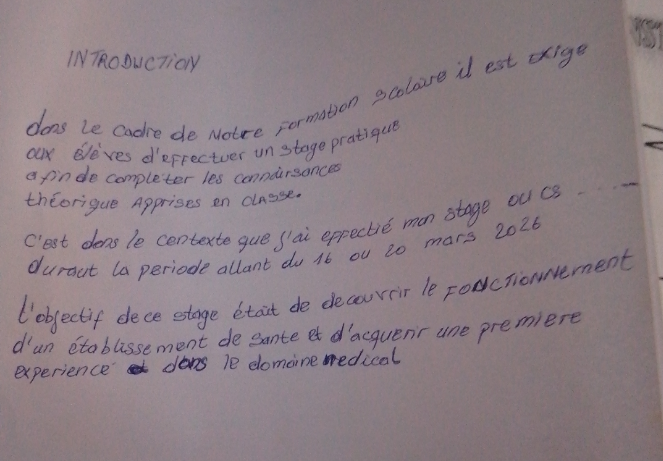 INTRODUCTION
dans le cadre de Notre Formation scolaire il est exige
aux élèves d'effectuer un stage pratique
afin de completer les connaissances
théorique Apprises en classe.
C'est dans le contexte que j'ai effectué mon stage au CS . . . .
durant la periode allant du 16 au 20 mars 2026
L'objectif de ce stage était de decouvrir le FONCTIONNement
d'un établissement de sante et d'acquerir une premiere
experience dans le domaine medical